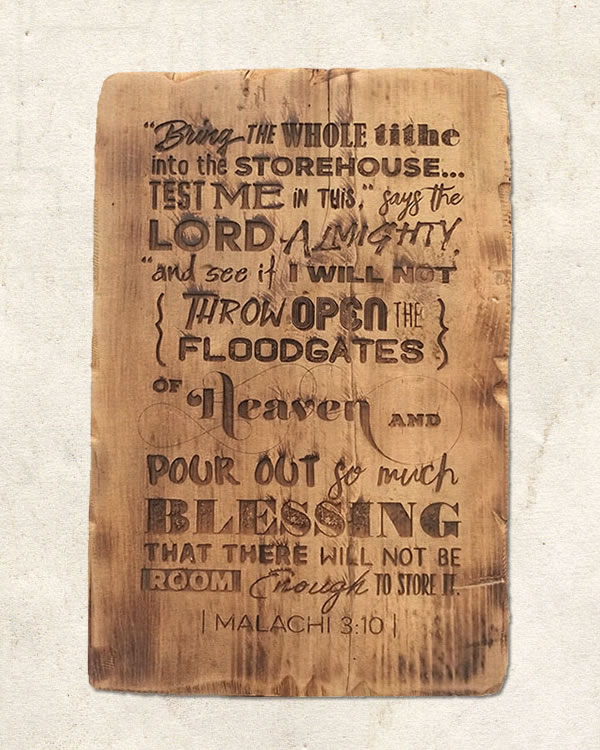 "Bring THE WHOLE tithe
into the STOREHOUSE...
TEST ME IN THIS," says the
LORD ALMIGHTY,
"and see if I WILL NOT
{ THROW OPEN THE
FLOODGATES }
OF Heaven AND
POUR OUT so much
BLESSING
THAT THERE WILL NOT BE
ROOM Enough TO STORE IT.
| MALACHI 3:10 |